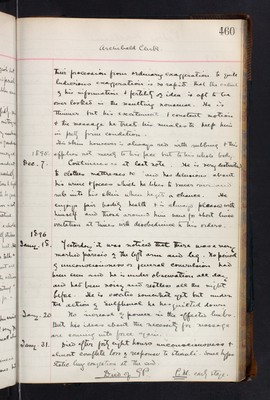 460
Archibald Clark
this procession from ordinary exaggeration to quite
ludicrous exaggeration is so rapid that the extent
of his information & fertility of idea is apt to be
over looked in the resulting nonsense. He is
thinner but his excitement & constant motion
& the massage he treats his muscles to keep him
in fairly firm condition.
His skin however is always red with rubbing & the
not merely to his face but to his whole body.
1895.
Dec. 7. Continues as at last note. He is very destructive
to clothes mattresses &c and has delusions about
his urine & faeces which he likes to
rub into his skin when he gets a chance. He
enjoys fair bodily health & is always pleased with
himself and those around him save for short lived
irritation at times with disobedience to his orders.
1896
Jany. 18. Yesterday it was noticed that there was a very
marked paresis of the left arm and leg. No period
of unconsciousness or general convulsion had
been seen and he is under observation all day
and has been noisy and restless all the night
before. He is excited somewhat yet but under
the action of sulphonal he has quieted down.
Jany. 20. No increase of power in the affected limbs
but his ideas about the necessity for massage
are coming into force again.
Jany. 31. Died after forty eight hours unconsciousness &
almost complete loss of response to stimuli. Some hypo
static lung congestion at the end.
Died of GP
early stage.